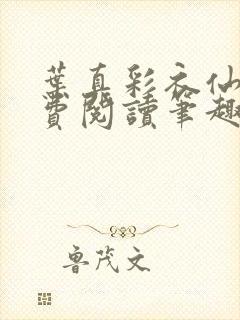 葉真彩衣仙
費閱讀筆趣
魯茂文